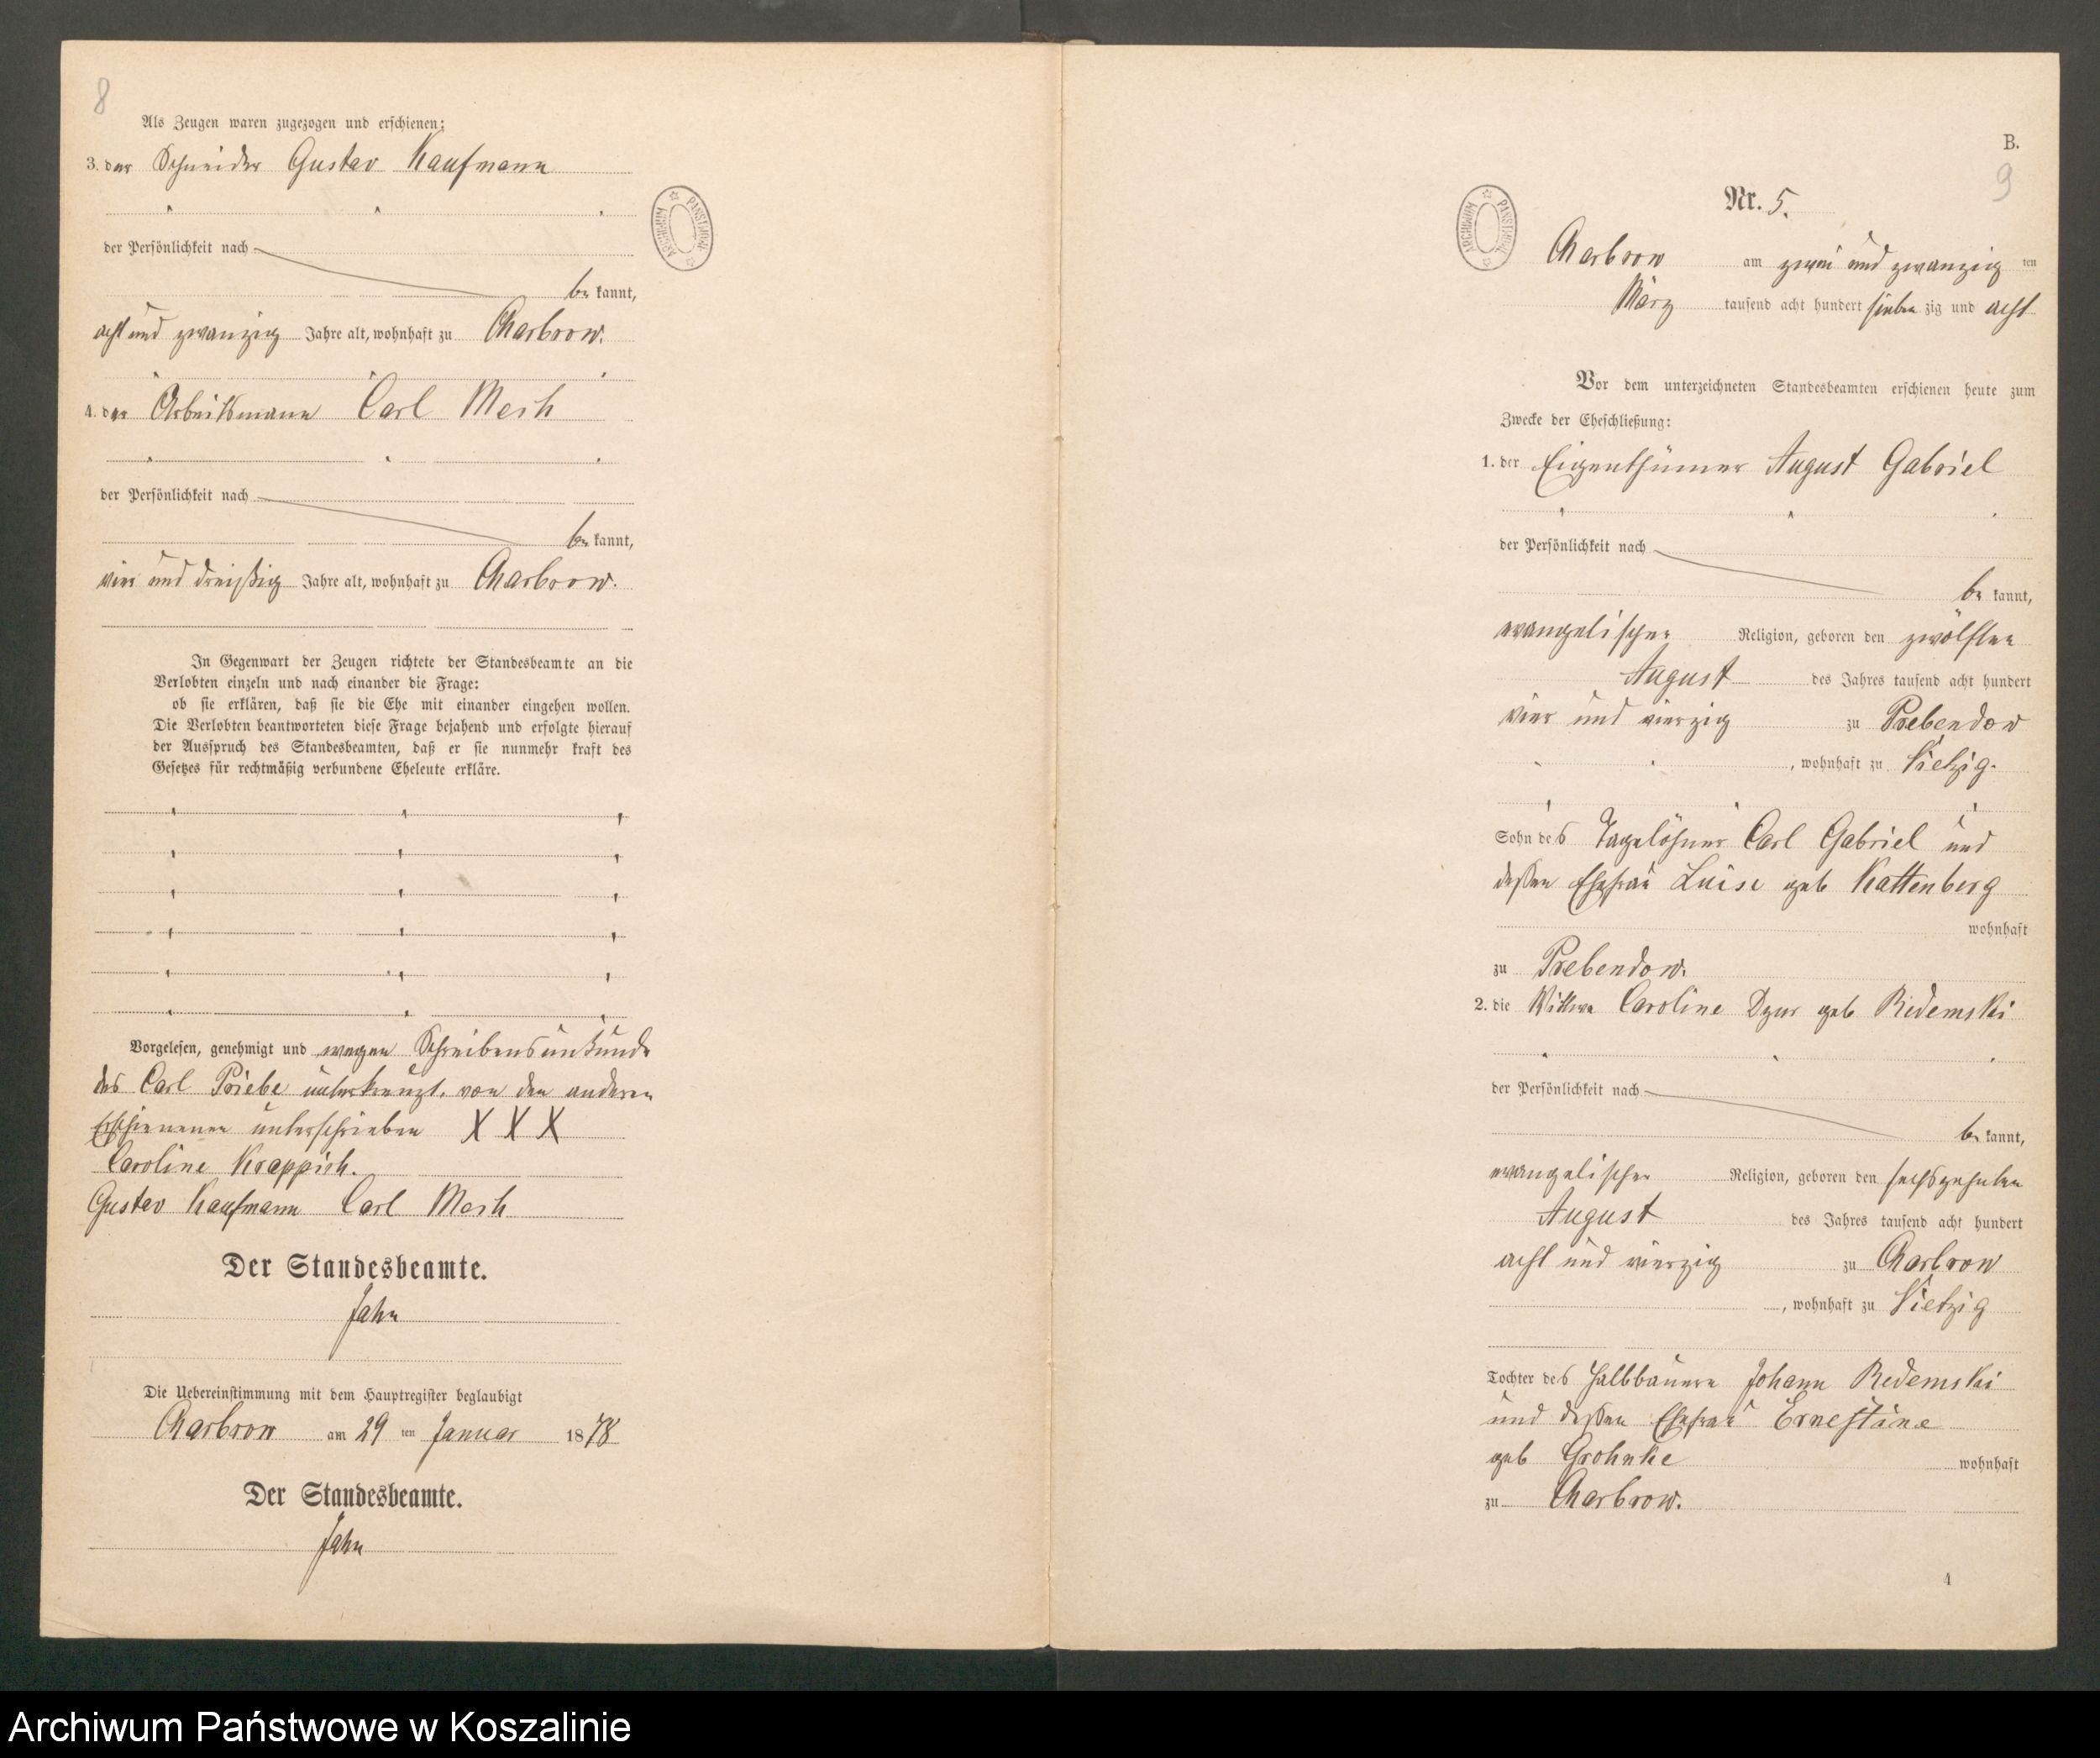 8
Als Zeugen waren zugezogen und erschienen:
3. der Schneider Gustav Kaufmann
der Persönlichkeit nach
be kannt,
acht und zwanzig Jahre alt, wohnhaft zu Charbrow.
4. der Arbeitsmann Carl Mesh
der Persönlichkeit nach
be kannt,
vier und dreißig Jahre alt, wohnhaft zu Charbrow.
In Gegenwart der Zeugen richtete der Standesbeamte an die
Verlobten einzeln und nach einander die Frage:
ob sie erklären, daß sie die Ehe mit einander eingehen wollen.
Die Verlobten beantworteten diese Frage bejahend und erfolgte hierauf
der Ausspruch des Standesbeamten, daß er sie nunmehr kraft des
Gesetzes für rechtmäßig verbundene Eheleute erkläre.
Vorgelesen, genehmigt und wegen Schreibensunkunde
des Carl Priebe unterkreuzt, von den anderen
Erschienenen unterschrieben X X X
Caroline Krappish.
Gustav Kaufmann Carl Mesh
Der Standesbeamte.
Jahn
Die Uebereinstimmung mit dem Hauptregister beglaubigt
Charbrow am 29 ten Januar 1878
Der Standesbeamte.
Jahn
ARCHIWUM PAŃSTWOWE
ARCHIWUM PAŃSTWOWE
B.
9
Nr. 5.
Charbrow am zwei und zwanzig ten
März tausend acht hundert sieben zig und acht
Vor dem unterzeichneten Standesbeamten erschienen heute zum
Zwecke der Eheschließung:
1. der Eigenthümer August Gabriel
der Persönlichkeit nach
be kannt,
evangelischer Religion, geboren den zwölften
August des Jahres tausend acht hundert
vier und vierzig zu Prebendow
, wohnhaft zu Vietzig.
Sohn des Tagelöhner Carl Gabriel und
dessen Ehefrau Luise geb Kattenberg
wohnhaft
zu Prebendow.
2. die Wittwe Caroline Dzur geb Redemski
der Persönlichkeit nach
be kannt,
evangelischer Religion, geboren den sechszehnten
August des Jahres tausend acht hundert
acht und vierzig zu Charbrow
, wohnhaft zu Vietzig
Tochter des Halbbauern Johann Redemski
und dessen Ehefrau Ernestine
geb Grohnke wohnhaft
zu Charbrow.
4
Archiwum Państwowe w Koszalinie